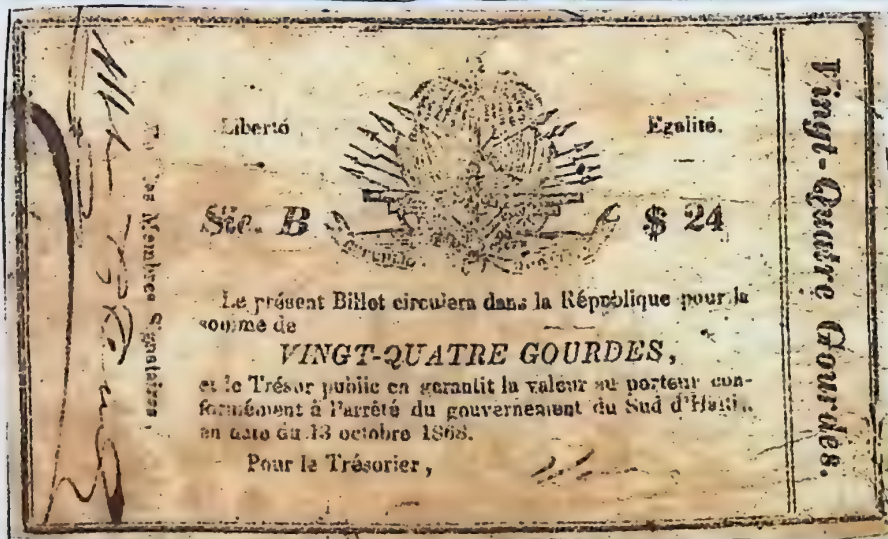 Liberté
Egalité.
Sie. B
$ 24
Le présent Billet circulera dans la République pour la
somme de
VINGT-QUATRE GOURDES,
et le Trésor public en garantit la valeur au porteur con-
formément à l'arrêté du gouvernement du Sud d'Haïti,
en date du 13 octobre 1868.
Pour le Trésorier,
Membres Signataires,
Vingt-Quatre Gourdes.